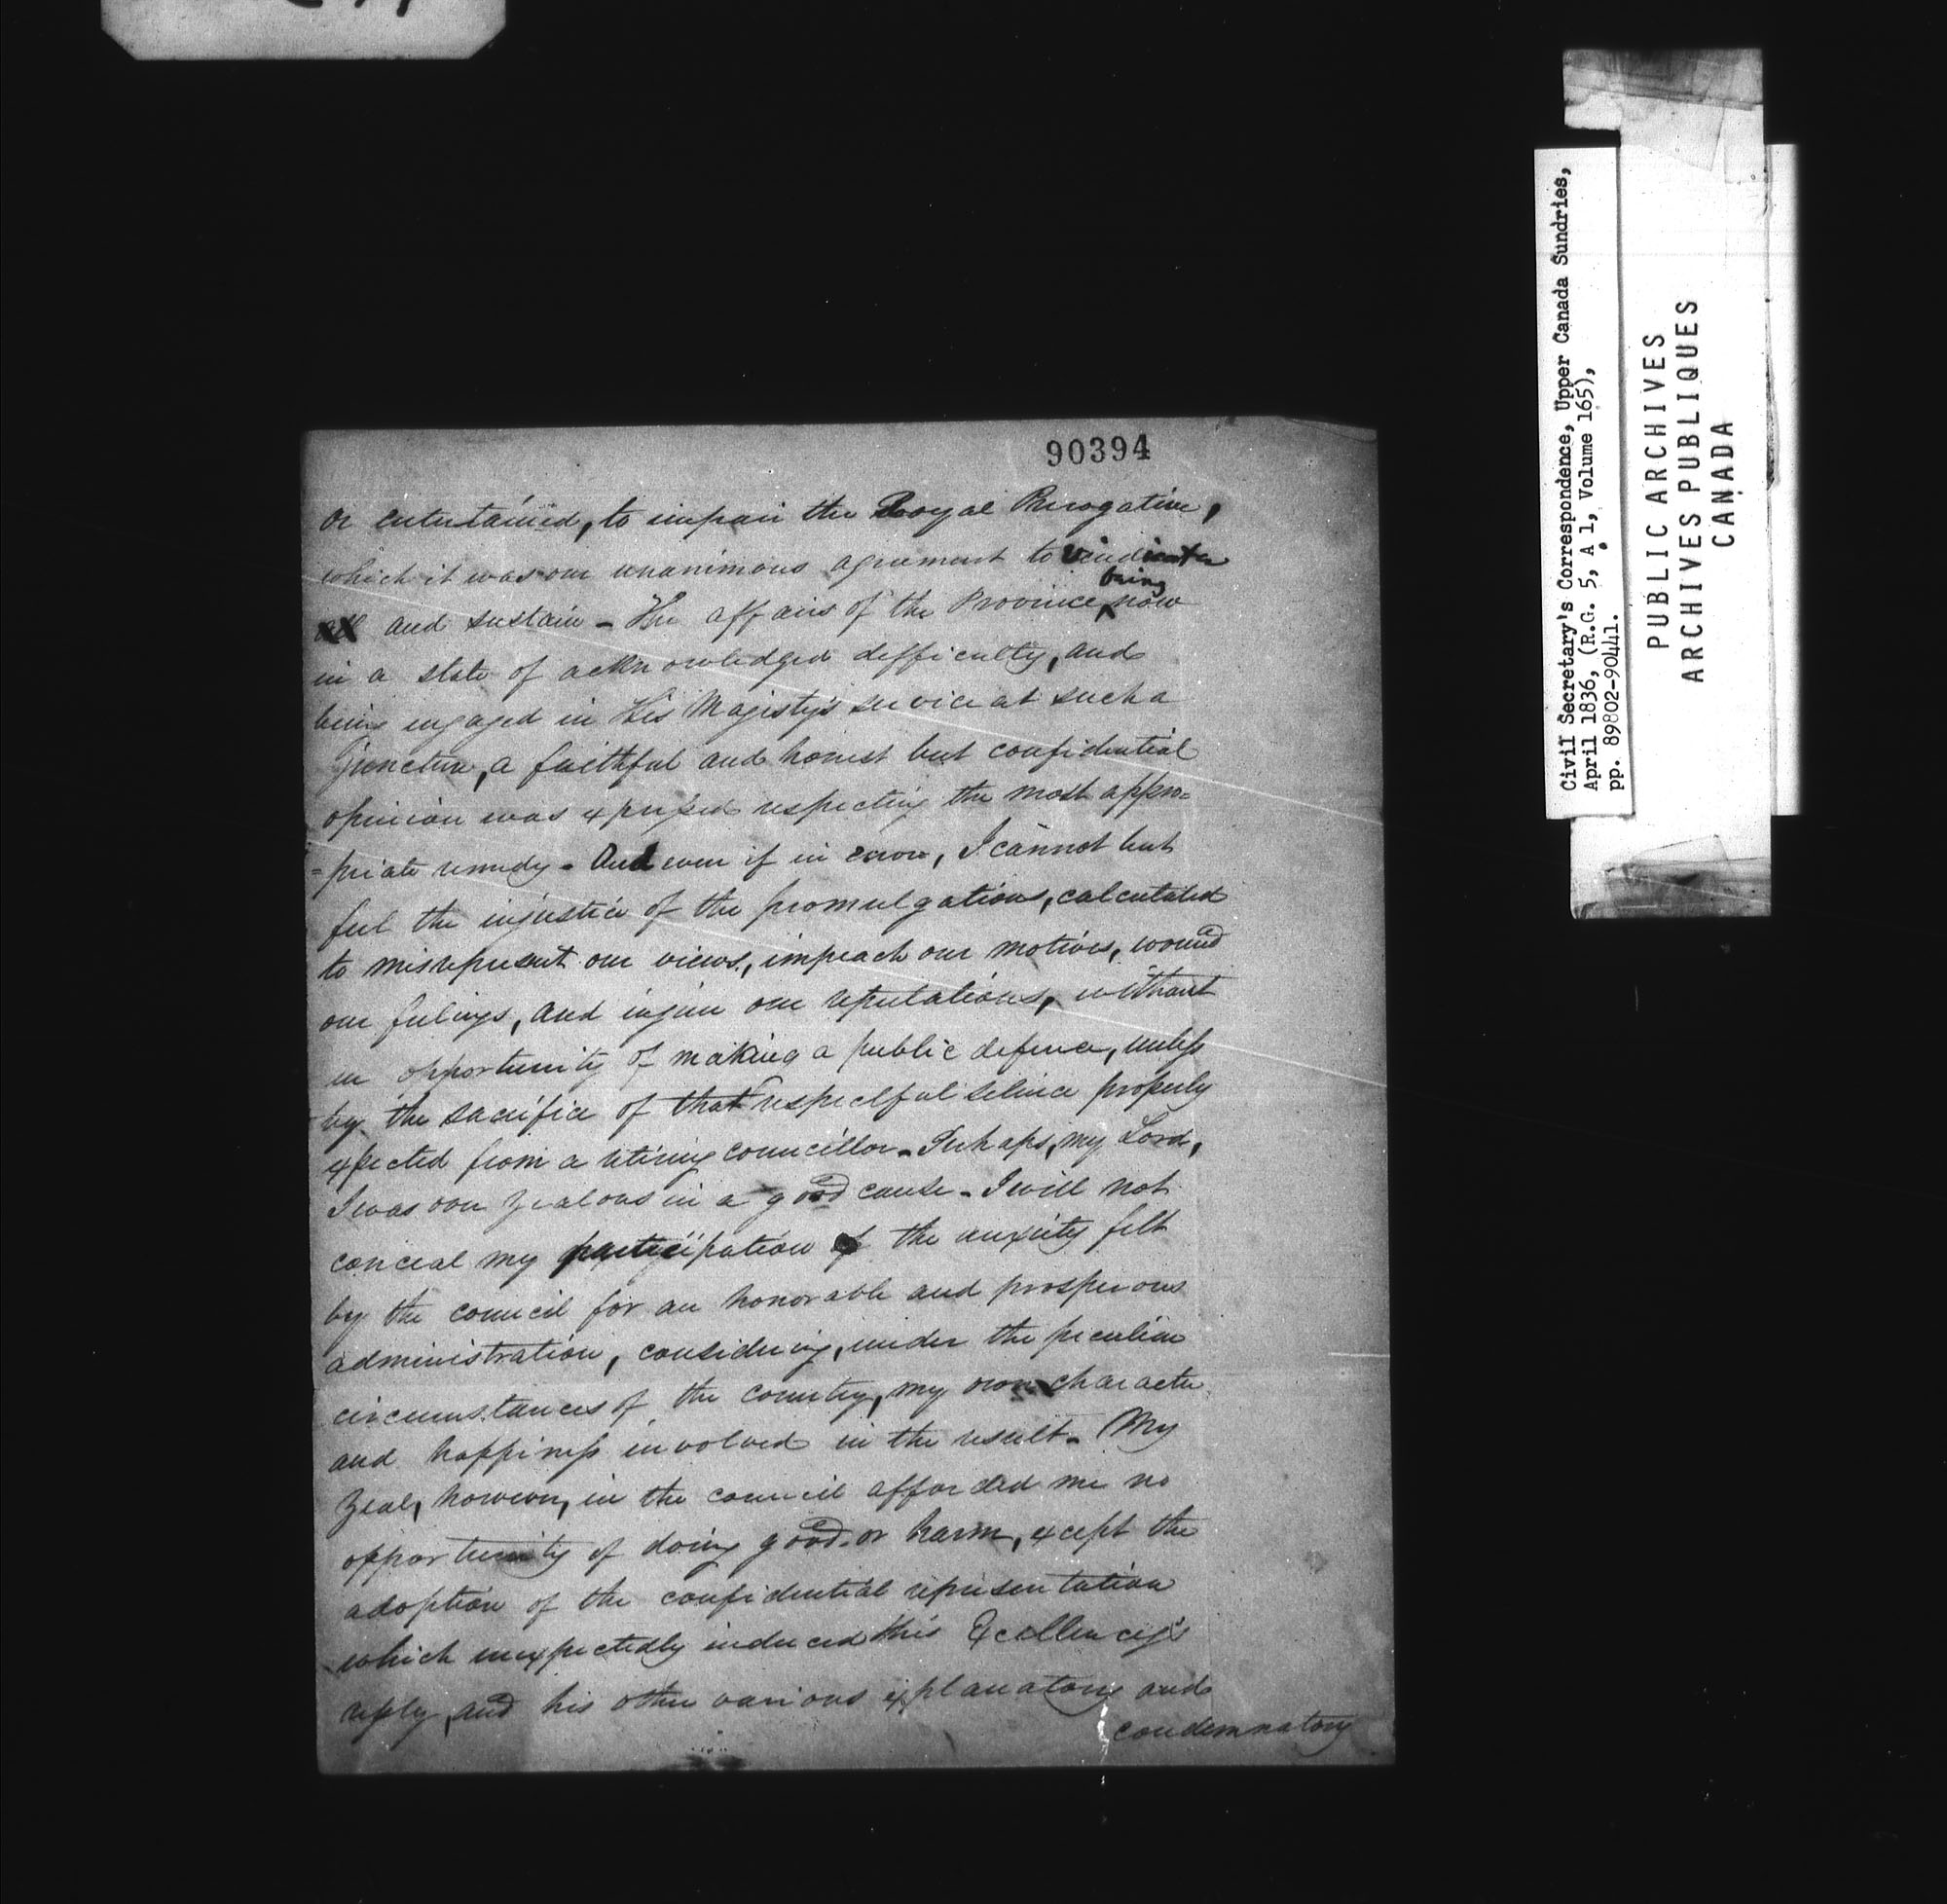 90394
or entertained, to impair the Royal Prerogative,
which it was our unanimous agreement to vindicate
and sustain - The affairs of the Province being now
in a state of acknowledged difficulty, and
being engaged in His Majesty's service at such a
juncture, a faithful and honest but confidential
opinion was expressed respecting the most appro=
=priate remedy - And even if in error, I cannot but
feel the injustice of the promulgations, calculated
to misrepresent our views, impeach our motives, wound
our feelings, and injure our reputations, without
an opportunity of making a public defence, unless
by the sacrifice of that respectful silence properly
expected from a retiring councillor - Perhaps, my Lord,
I was over zealous in a good cause - I will not
conceal my participation of the anxiety felt
by the council for an honorable and prosperous
administration, considering, under the peculiar
circumstances of the country, my own character
and happiness involved in the result - My
zeal, however, in the council afforded me no
opportunity of doing good or harm, except the
adoption of the confidential representation
which unexpectedly induced this Excellency's
reply, and his other various explanatory and
condemnatory
Civil Secretary's Correspondence, Upper Canada Sundries,
April 1836, (R.G. 5, A 1, Volume 165),
pp. 89802-90441.
PUBLIC ARCHIVES
ARCHIVES PUBLIQUES
CANADA